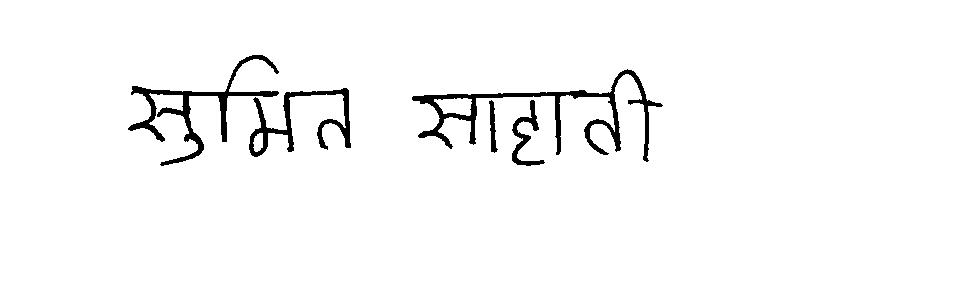 सुमित साहाती